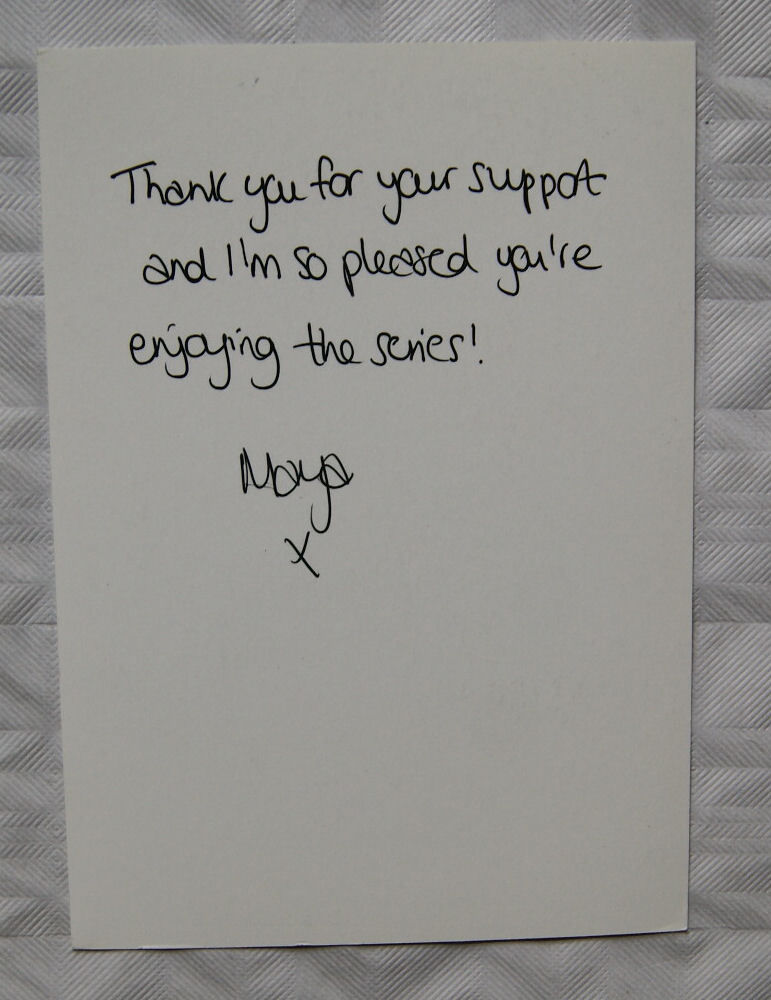 Thank you for your suppot
and I'm so pleased you're
enjoying the series!
Maya
x